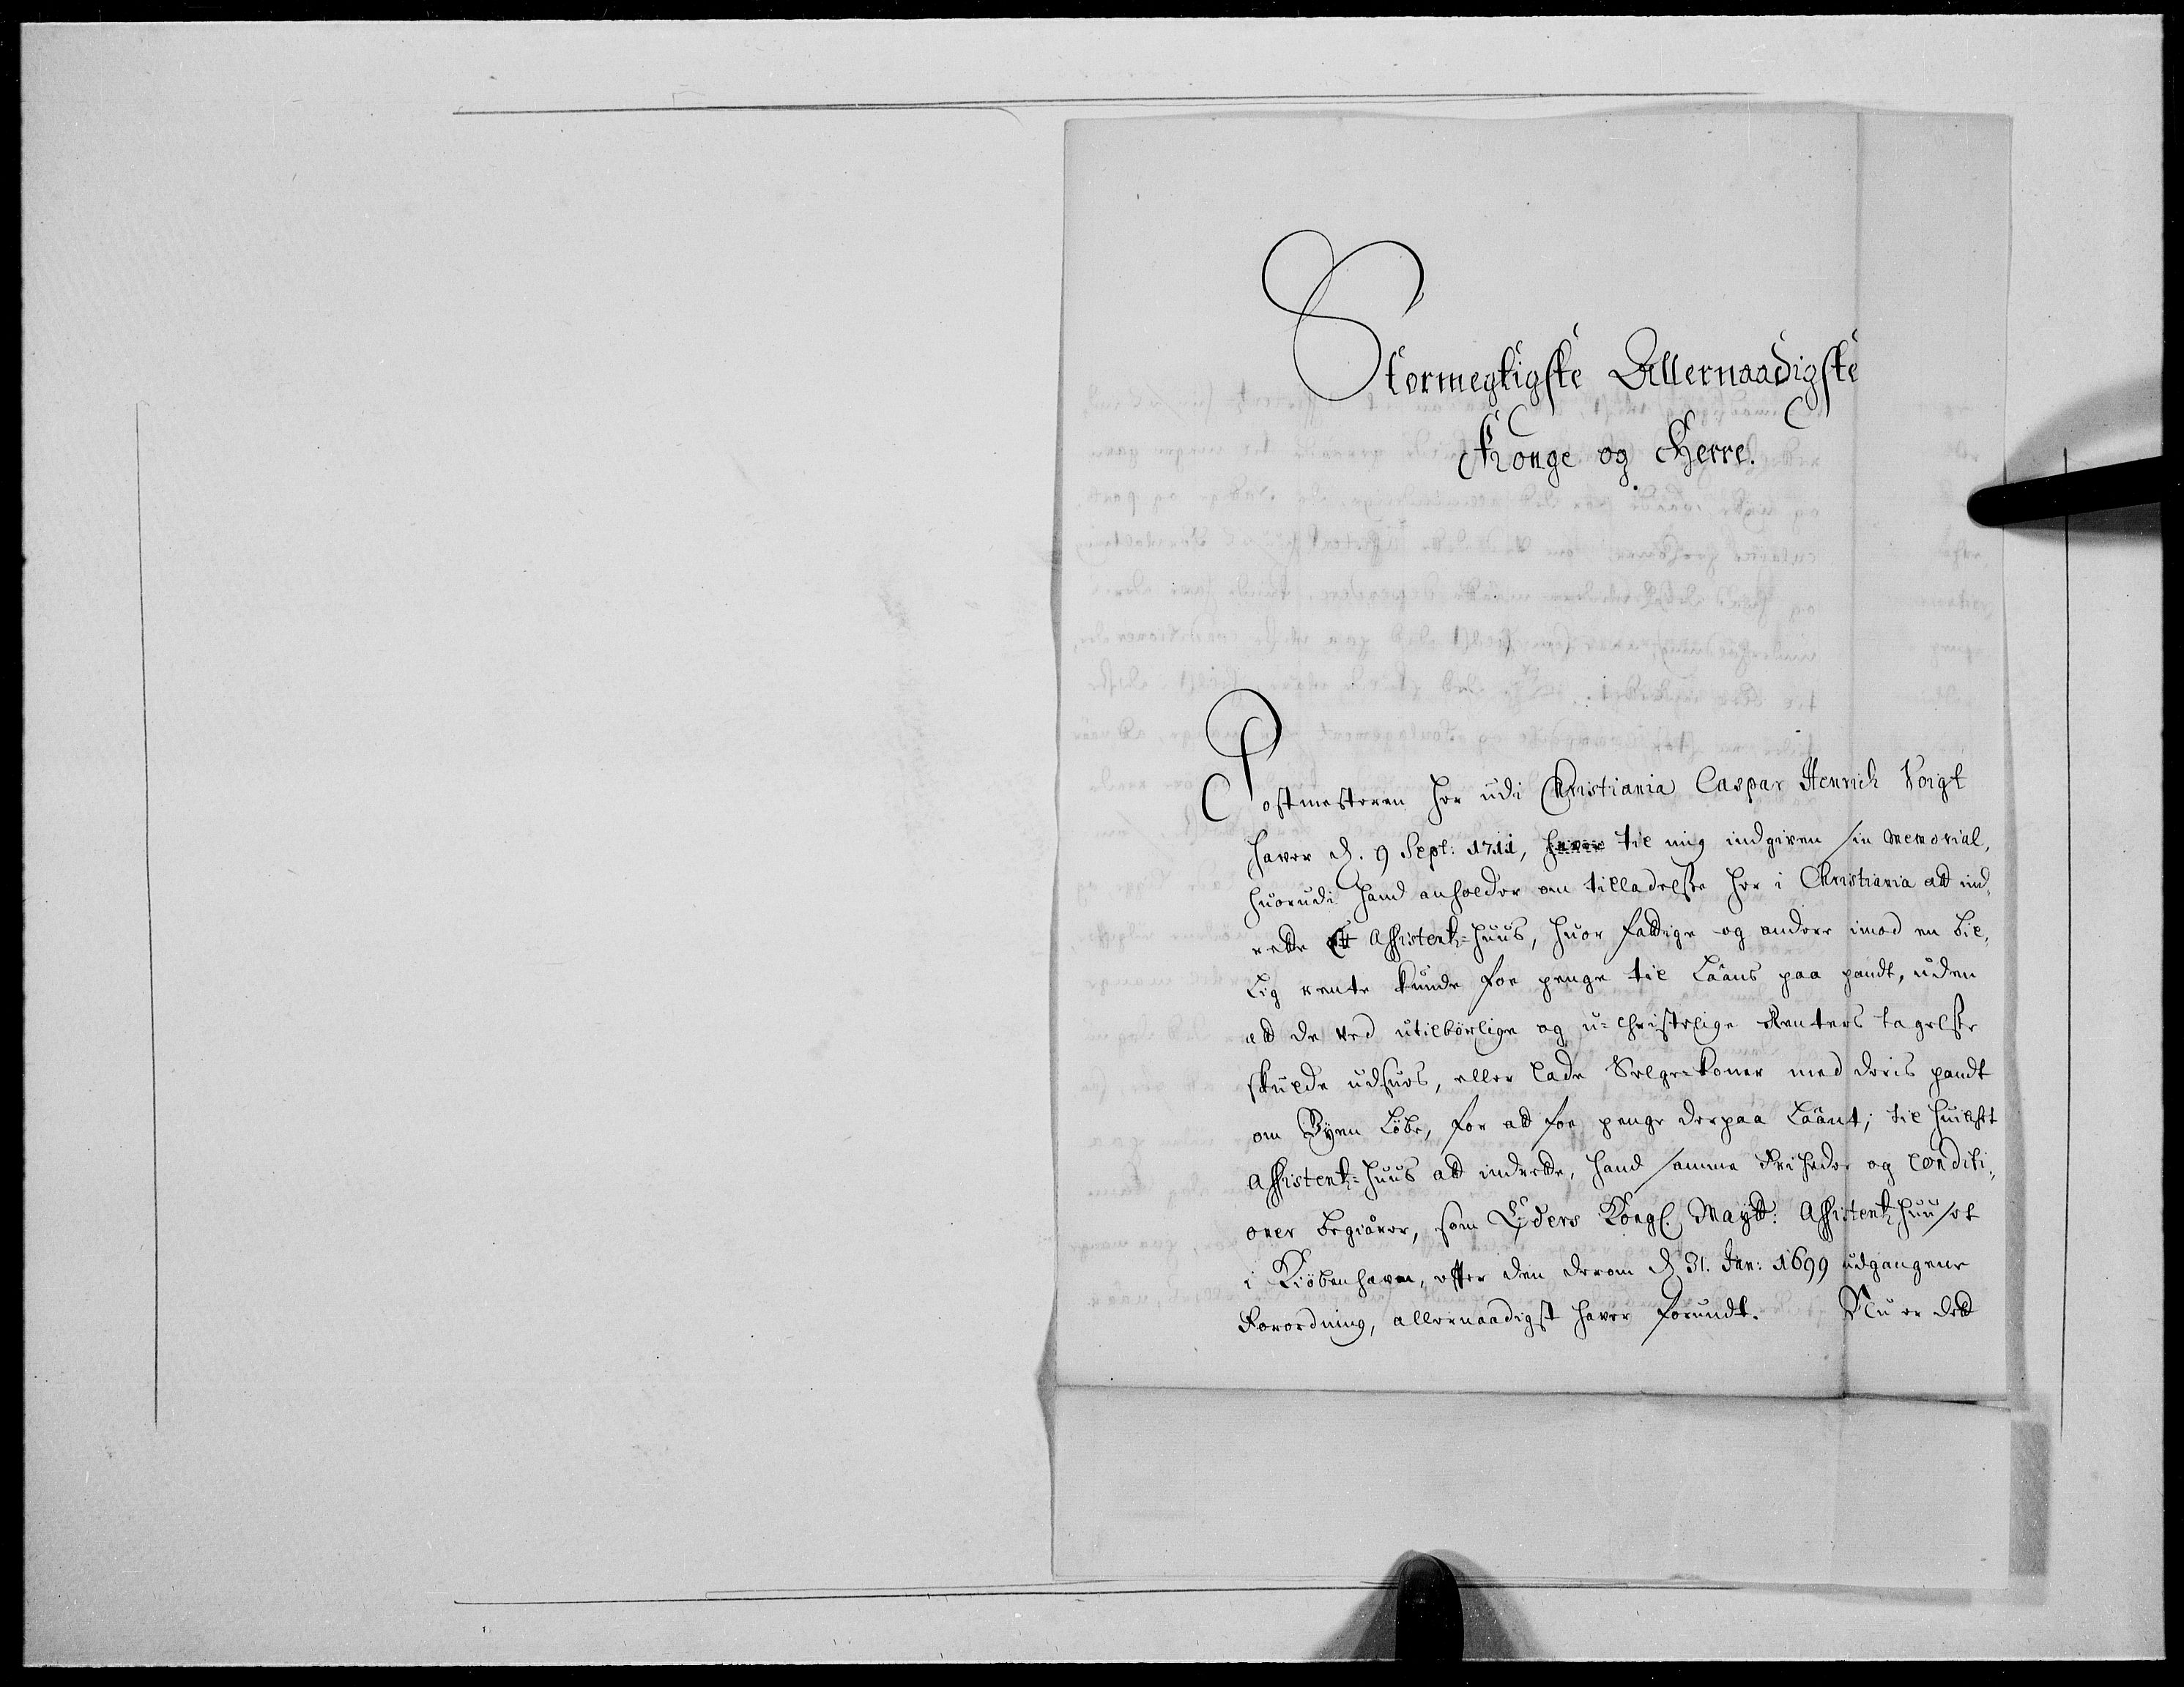 Stormegtigste Allernaadigste
Konge og Herre.
Postmesteren her udi Christiania Caspar Henrich Voigt
haver d. 9 Sept: 1711, haver til mig indgiven sin Memorial,
huorudi hand anholder om tilladelsse her i Christiania att ind,
rette Et Assistentz-Huus, huor fattige og andere imod en bil,
lig rente kunde foe penge til Laans paa pandt, uden
att de ved utilbörlige og u-christelige Renters tagelsse
skulde udsues, eller lade Selge-koner med deris pandt
om Byen Löbe, for att foe penge derpaa Laant; til huilket
Assistentz-Huus att indrette, hand samme Friheder og Conditi,
oner begiärer, som Eders Kongl. Maytt: Assistentz Huuset
i Kiöbenhaven, efter den derom d 31. Jan: 1699 udgangene
Forordning, allernaadigst haver forundt. Nu er dett